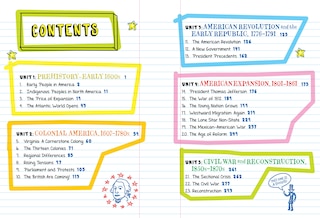 CONTENTS
UNIT 1: PREHISTORY–EARLY 1600s 1
1. Early People in America 2
2. Indigenous Peoples in North America 11
3. The Price of Expansion 19
4. The Atlantic World Opens 43
UNIT 2: COLONIAL AMERICA, 1607–1780s 59
5. Virginia: A Cornerstone Colony 60
6. The Thirteen Colonies 71
7. Regional Differences 83
8. Rising Tensions 93
9. Parliament and Protests 105
10. The British Are Coming! 117
UNIT 3: AMERICAN REVOLUTION and the
EARLY REPUBLIC, 1776–1791 123
11. The American Revolution 126
12. A New Government 141
13. President Precedents 162
UNIT 4: AMERICAN EXPANSION, 1801–1861 173
14. President Thomas Jefferson 176
15. The War of 1812 189
16. The Young Nation Grows 199
17. Westward Migration Again 217
18. The Lone Star Non-State 221
19. The Mexican-American War 237
20. The Age of Reform 249
UNIT 5: CIVIL WAR and RECONSTRUCTION,
1850s–1870s 261
21. The Sectional Crisis 262
22. The Civil War 277
23. Reconstruction 293